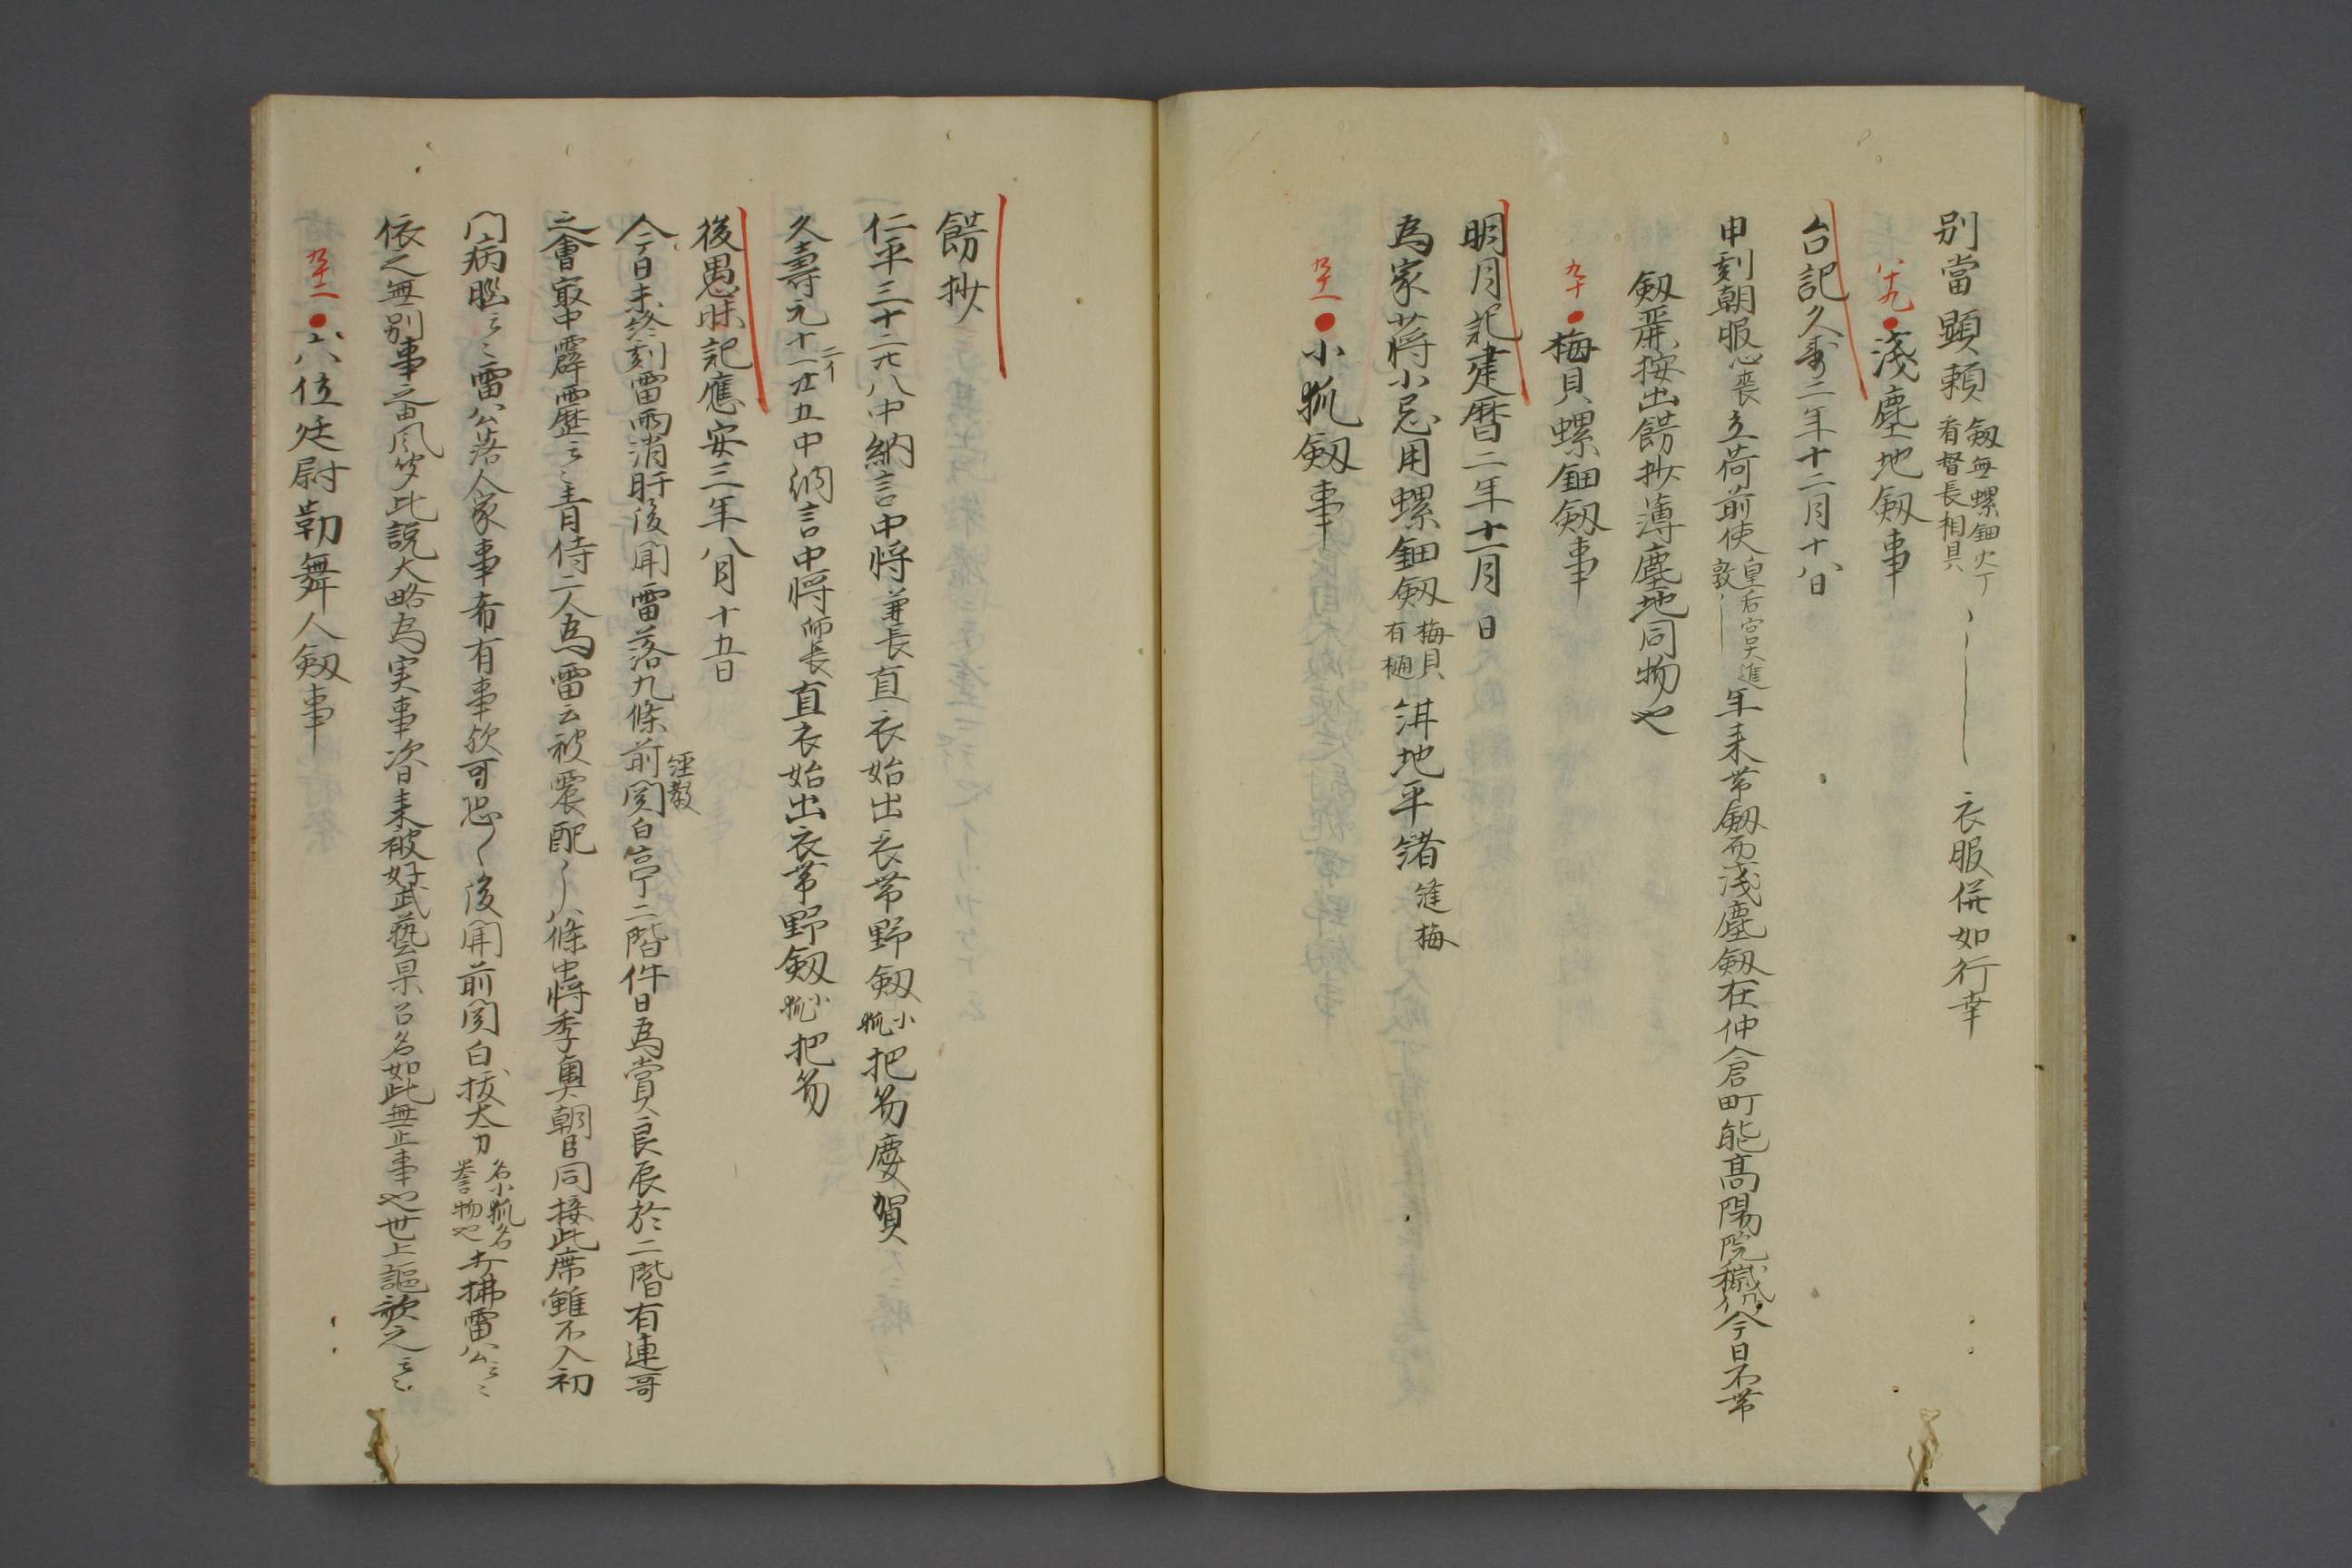 別當顕頼 劔無螺鈿火丁 看督長相具 衣服併如行幸
八十九 淺塵地劔事
台記久壽二年十二月十八日
申刻朝服心喪立荷前使 皇后宮大進 年来帯劔而淺塵劔在仲倉町能高陽院穢仍今日不帯
劔麗按出餝抄薄塵地同物也
九十 梅貝螺鈿劔事
明月記建暦二年十一月 日
為家蒋小忌用螺鈿劔 梅貝 有樋 地平緒 縫梅
九十一 小狐劔事
餝抄
仁平三十二廿八中納言中将兼長直衣始出衣帯野劔 小狐 把笏慶賀
久壽元十一 二イ 廿五中納言中将師長直衣始出衣帯野劔 小狐 把笏
後愚昧記應安三年八月十五日
今日未終刻雷雨消肝後聞雷落九條前関白 経教 亭二階件日為賞良辰於二階有連哥
之會最中霹靂云々青侍二人為雷云被震配〻八條中将季興朝臣同接此席雖不入初
門病脳云々雷公落人家事希有事欤可恐〻後聞前関白抜太刀 名小狐名 誉物也 打拂雷公云々
依之無別事之由風聞此說大略為実事次日来被好武藝果名如此無止事也世上謳歌之云々
六位廷尉勒舞人劔事